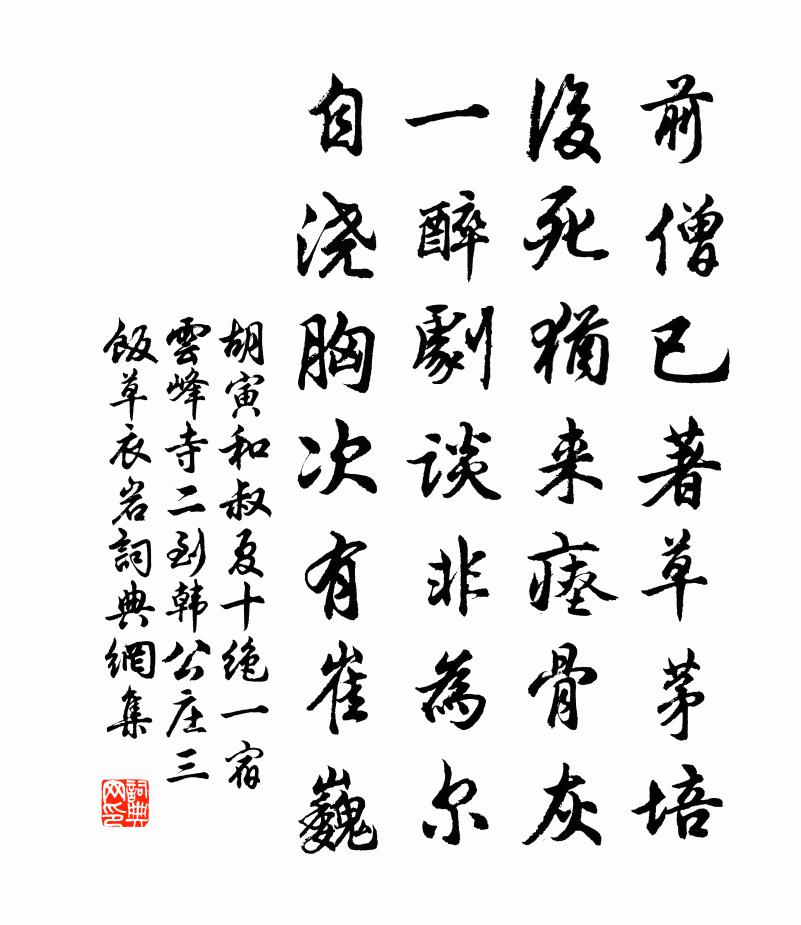 前僧已著草茅培
後死猶来瘗骨灰
一醉劇谈非為尔
自浇胸次有崔巍
胡寅和叔夏十绝一宿
雲峰寺二到韩公庄三
飯草衣岩詞典網集
詞典网印